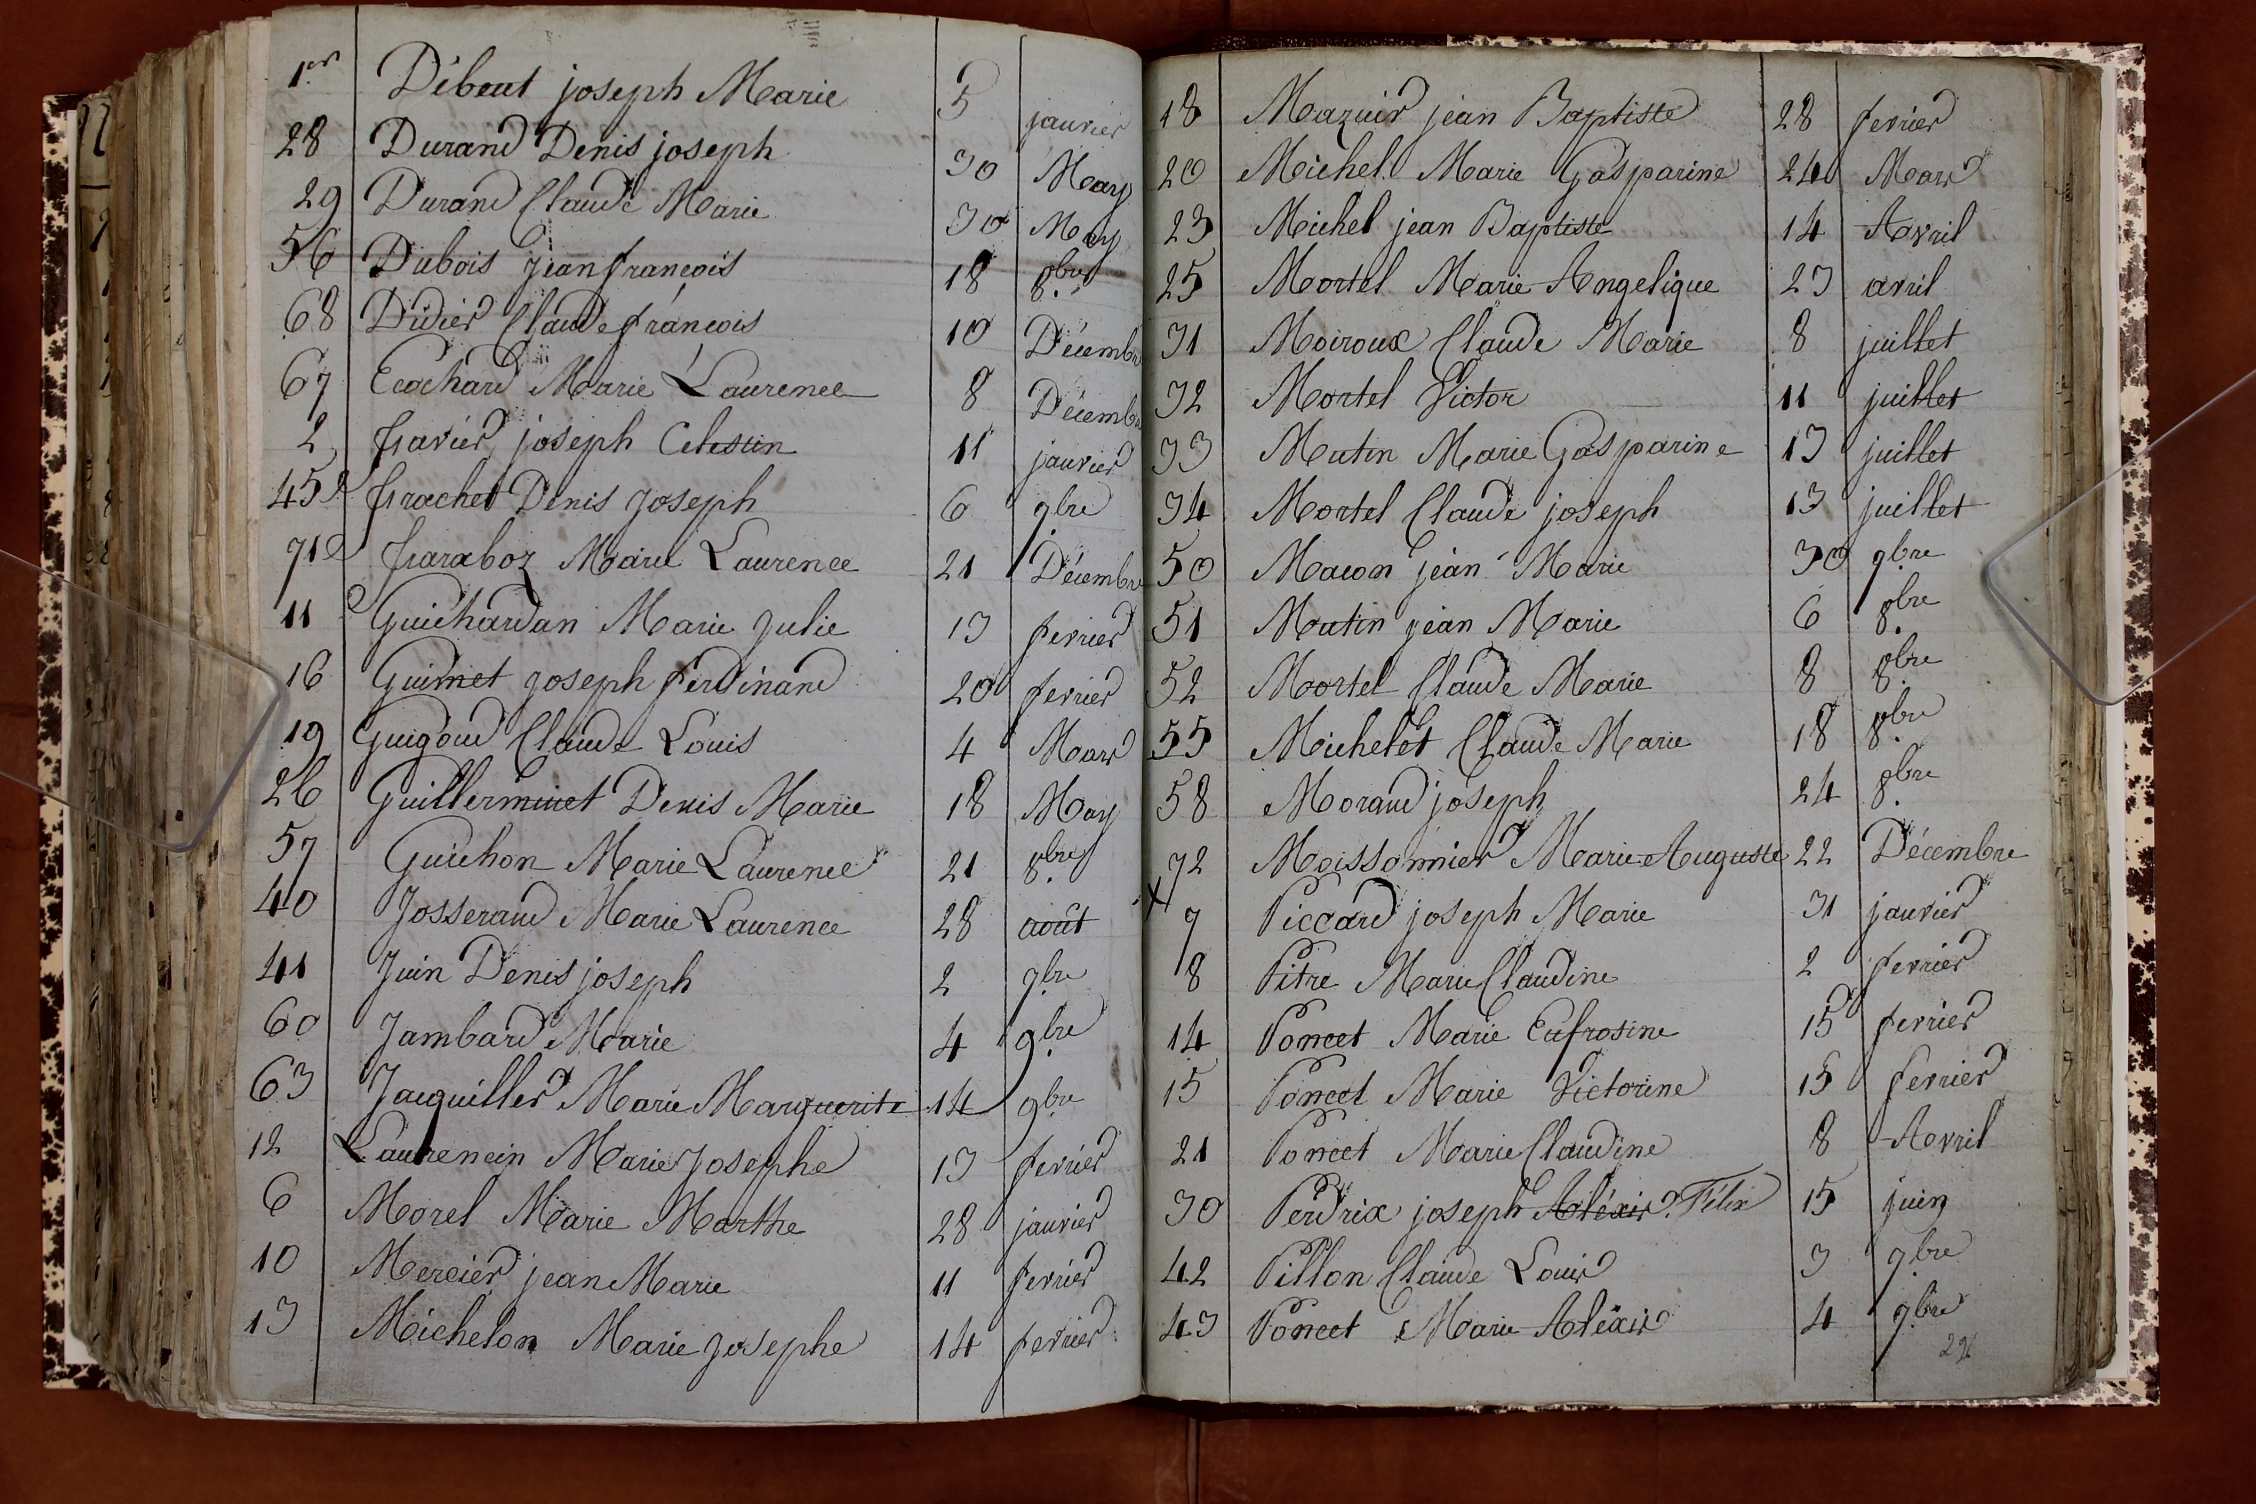 1er Débeut joseph Marie 5 janvier
28 Durand Denis joseph 30 May
29 Durand Claude Marie 30 May
56 Dubois Jean françois 18 8bre
68 Didier Claude françois 10 Décembre
67 Ecochard Marie Laurence 8 Décembre
2 fravier joseph Celestin 11 janvier
45 frachet Denis Joseph 6 9bre
71 faraboz Marie Laurence 21 Décembre
11 Guichardan Marie Julie 13 fevrier
16 Guimet Joseph ferdinand 20 fevrier
19 Guigoud Claude Louis 4 Mars
26 Guilleminet Denis Marie 18 May
57 Guichon Marie Laurence 21 8bre
40 Josserand Marie Laurence 28 août
41 Juin Denis joseph 2 9bre
60 Jambard Marie 4 9bre
63 Jacquiller Marie Marguerite 14 9bre
12 Laurencin Marie Josephe 13 fevrier
6 Morel Marie Marthe 28 janvier
10 Mercier jean Marie 11 fevrier
13 Michelon Marie Josephe 14 fevrier
18 Mazuir jean Baptiste 28 fevrier
20 Michel Marie Gasparine 24 Mars
23 Michel jean Baptiste 14 Avril
25 Mortel Marie Angelique 23 avril
31 Moiroux Claude Marie 8 juillet
32 Mortel Victor 11 juillet
33 Mutin Marie Gasparine 13 juillet
34 Mortel Claude joseph 13 juillet
50 Macon jean Marie 30 9bre
51 Mutin jean Marie 6 8bre
52 Mortel Claude Marie 8 8bre
55 Michelet Claude Marie 18 8bre
58 Morand joseph 24 8bre
72 Moissonnier Marie Auguste 22 Décembre
x 7 Piccard joseph Marie 31 janvier
8 Pitre Marie Claudine 2 fevrier
14 Poncet Marie Eufrosine 15 fevrier
15 Poncet Marie Victorine 15 fevrier
21 Poncet Marie Claudine 8 Avril
30 Perdrix joseph Aléxis Félix 15 juin
42 Pillon Claude Louis 3 9bre
43 Poncet Marie Aléxis 4 9bre